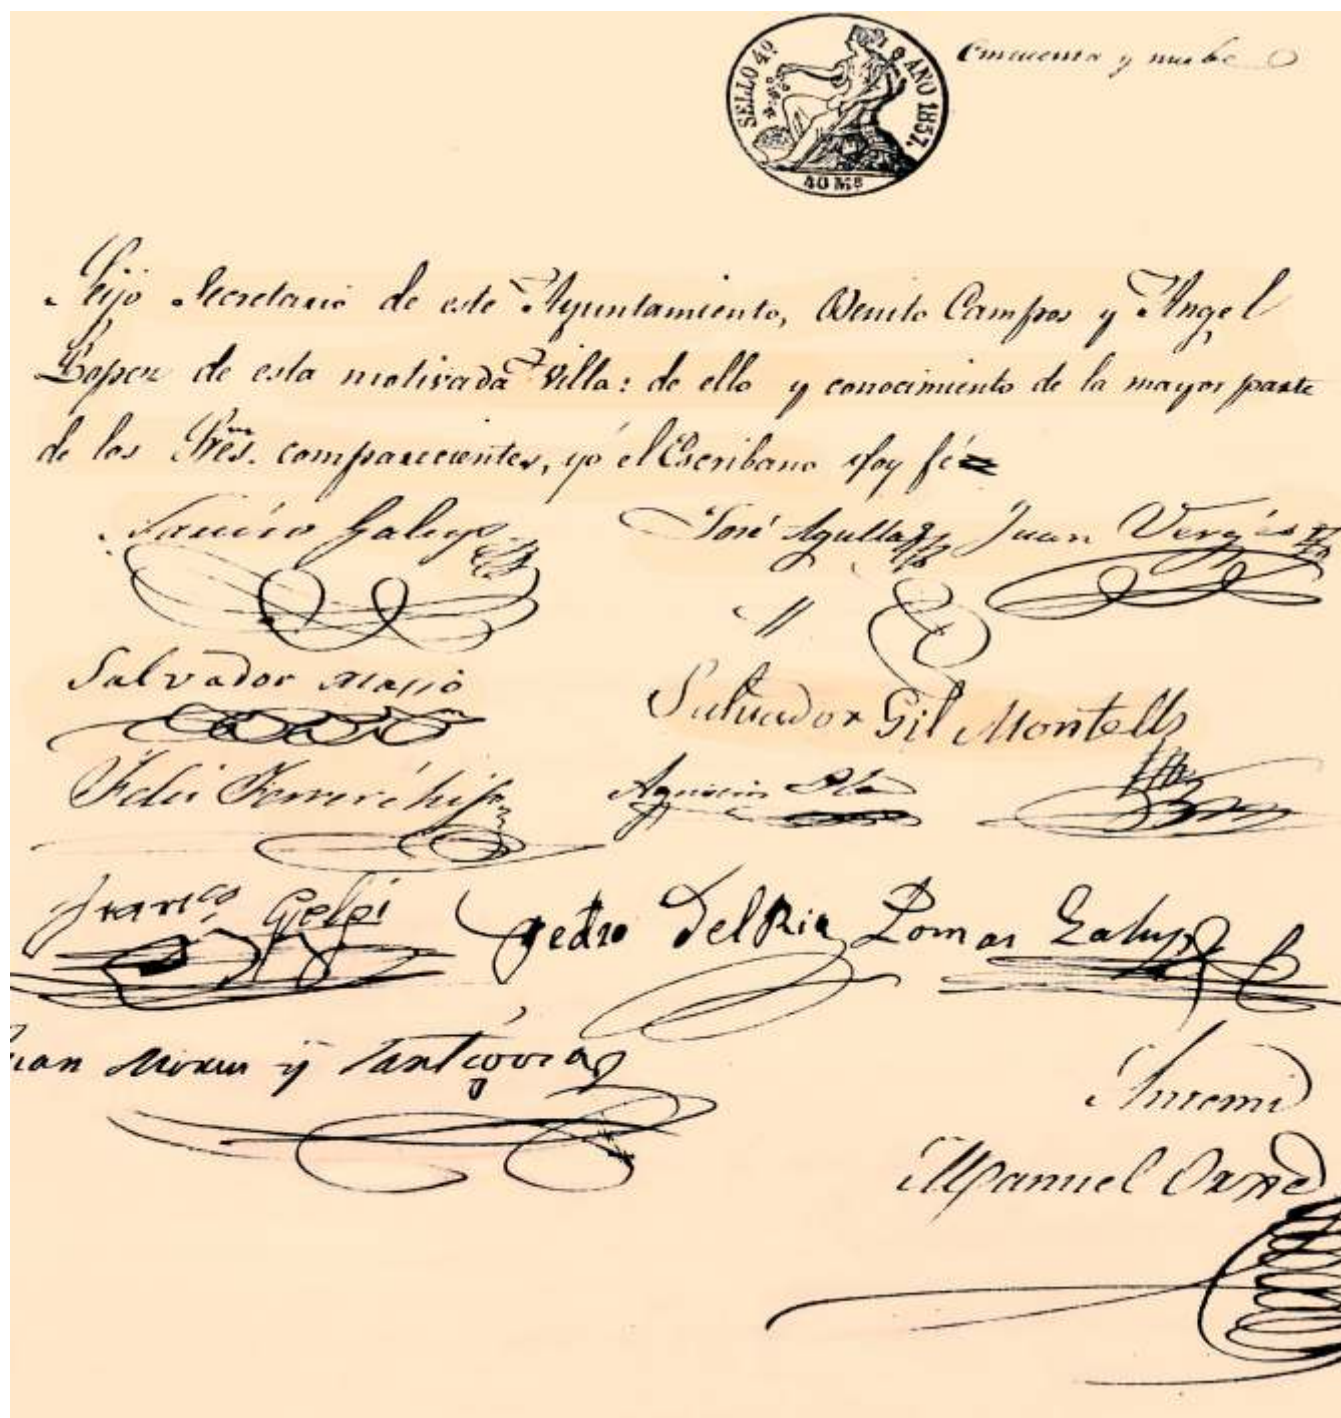 SELLO 4º AÑO 1857. 40 Ms
Cincuenta y nuebe
Seijo Secretario de este Ayuntamiento, Benito Campos y Angel
Lopez de esta motivada Villa: de ello y conocimiento de la mayor parte
de los Sres. comparecientes, yó el Escribano doy fé
Galup José Agulla Juan Vergés
Salvador Massó
Salvador Gil Montells
Felix Ferrer é hijo Agustin Pla
Franco Gelpi Pedro Del Rio Tomas Galup
Juan y
Antemi
Manuel